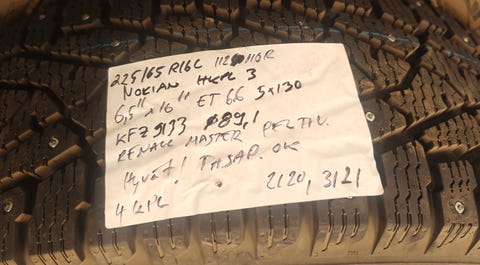 225/65 R16C 112/110R
NOKIAN HKPL 3
6,5" x 16" ET 66 5x130
KFZ 9133 Ø89,1
RENAULT MASTER PELTIV.
Hyvät! TASAP. OK
4 KPL 2120, 3121